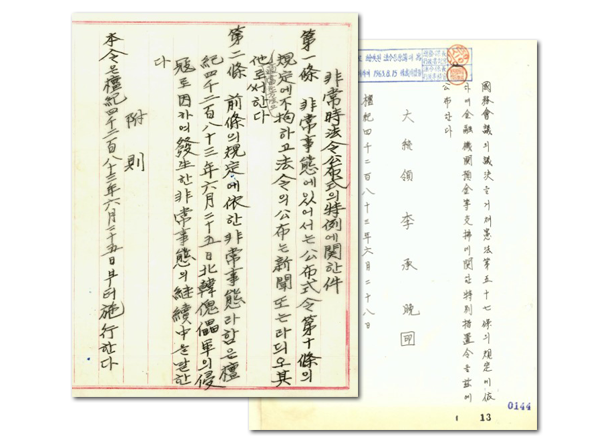 非常時法令公布式의特例에關한件
第一條 非常事態에있어서는公布式令第十條의
規定에不拘하고法令의公布는新聞또는라듸오其
他로써한다
第二條 前條의規定에依한非常事態라함은檀
紀四千二百八十三年六月二十五日北韓傀儡軍의侵
寇로因하여發生한非常事態의継續中을말한
다
附則
本令은檀紀四千二百八十三年六月二十五日부터施行한다
國務會議의議決을거쳐憲法第五十七條의規定에依
하여金融機關預金等支拂에関한特別措置令을玆에
公布한다
大統領 李承晩 印
檀紀四千二百八十三年六月二十八日
13
0144